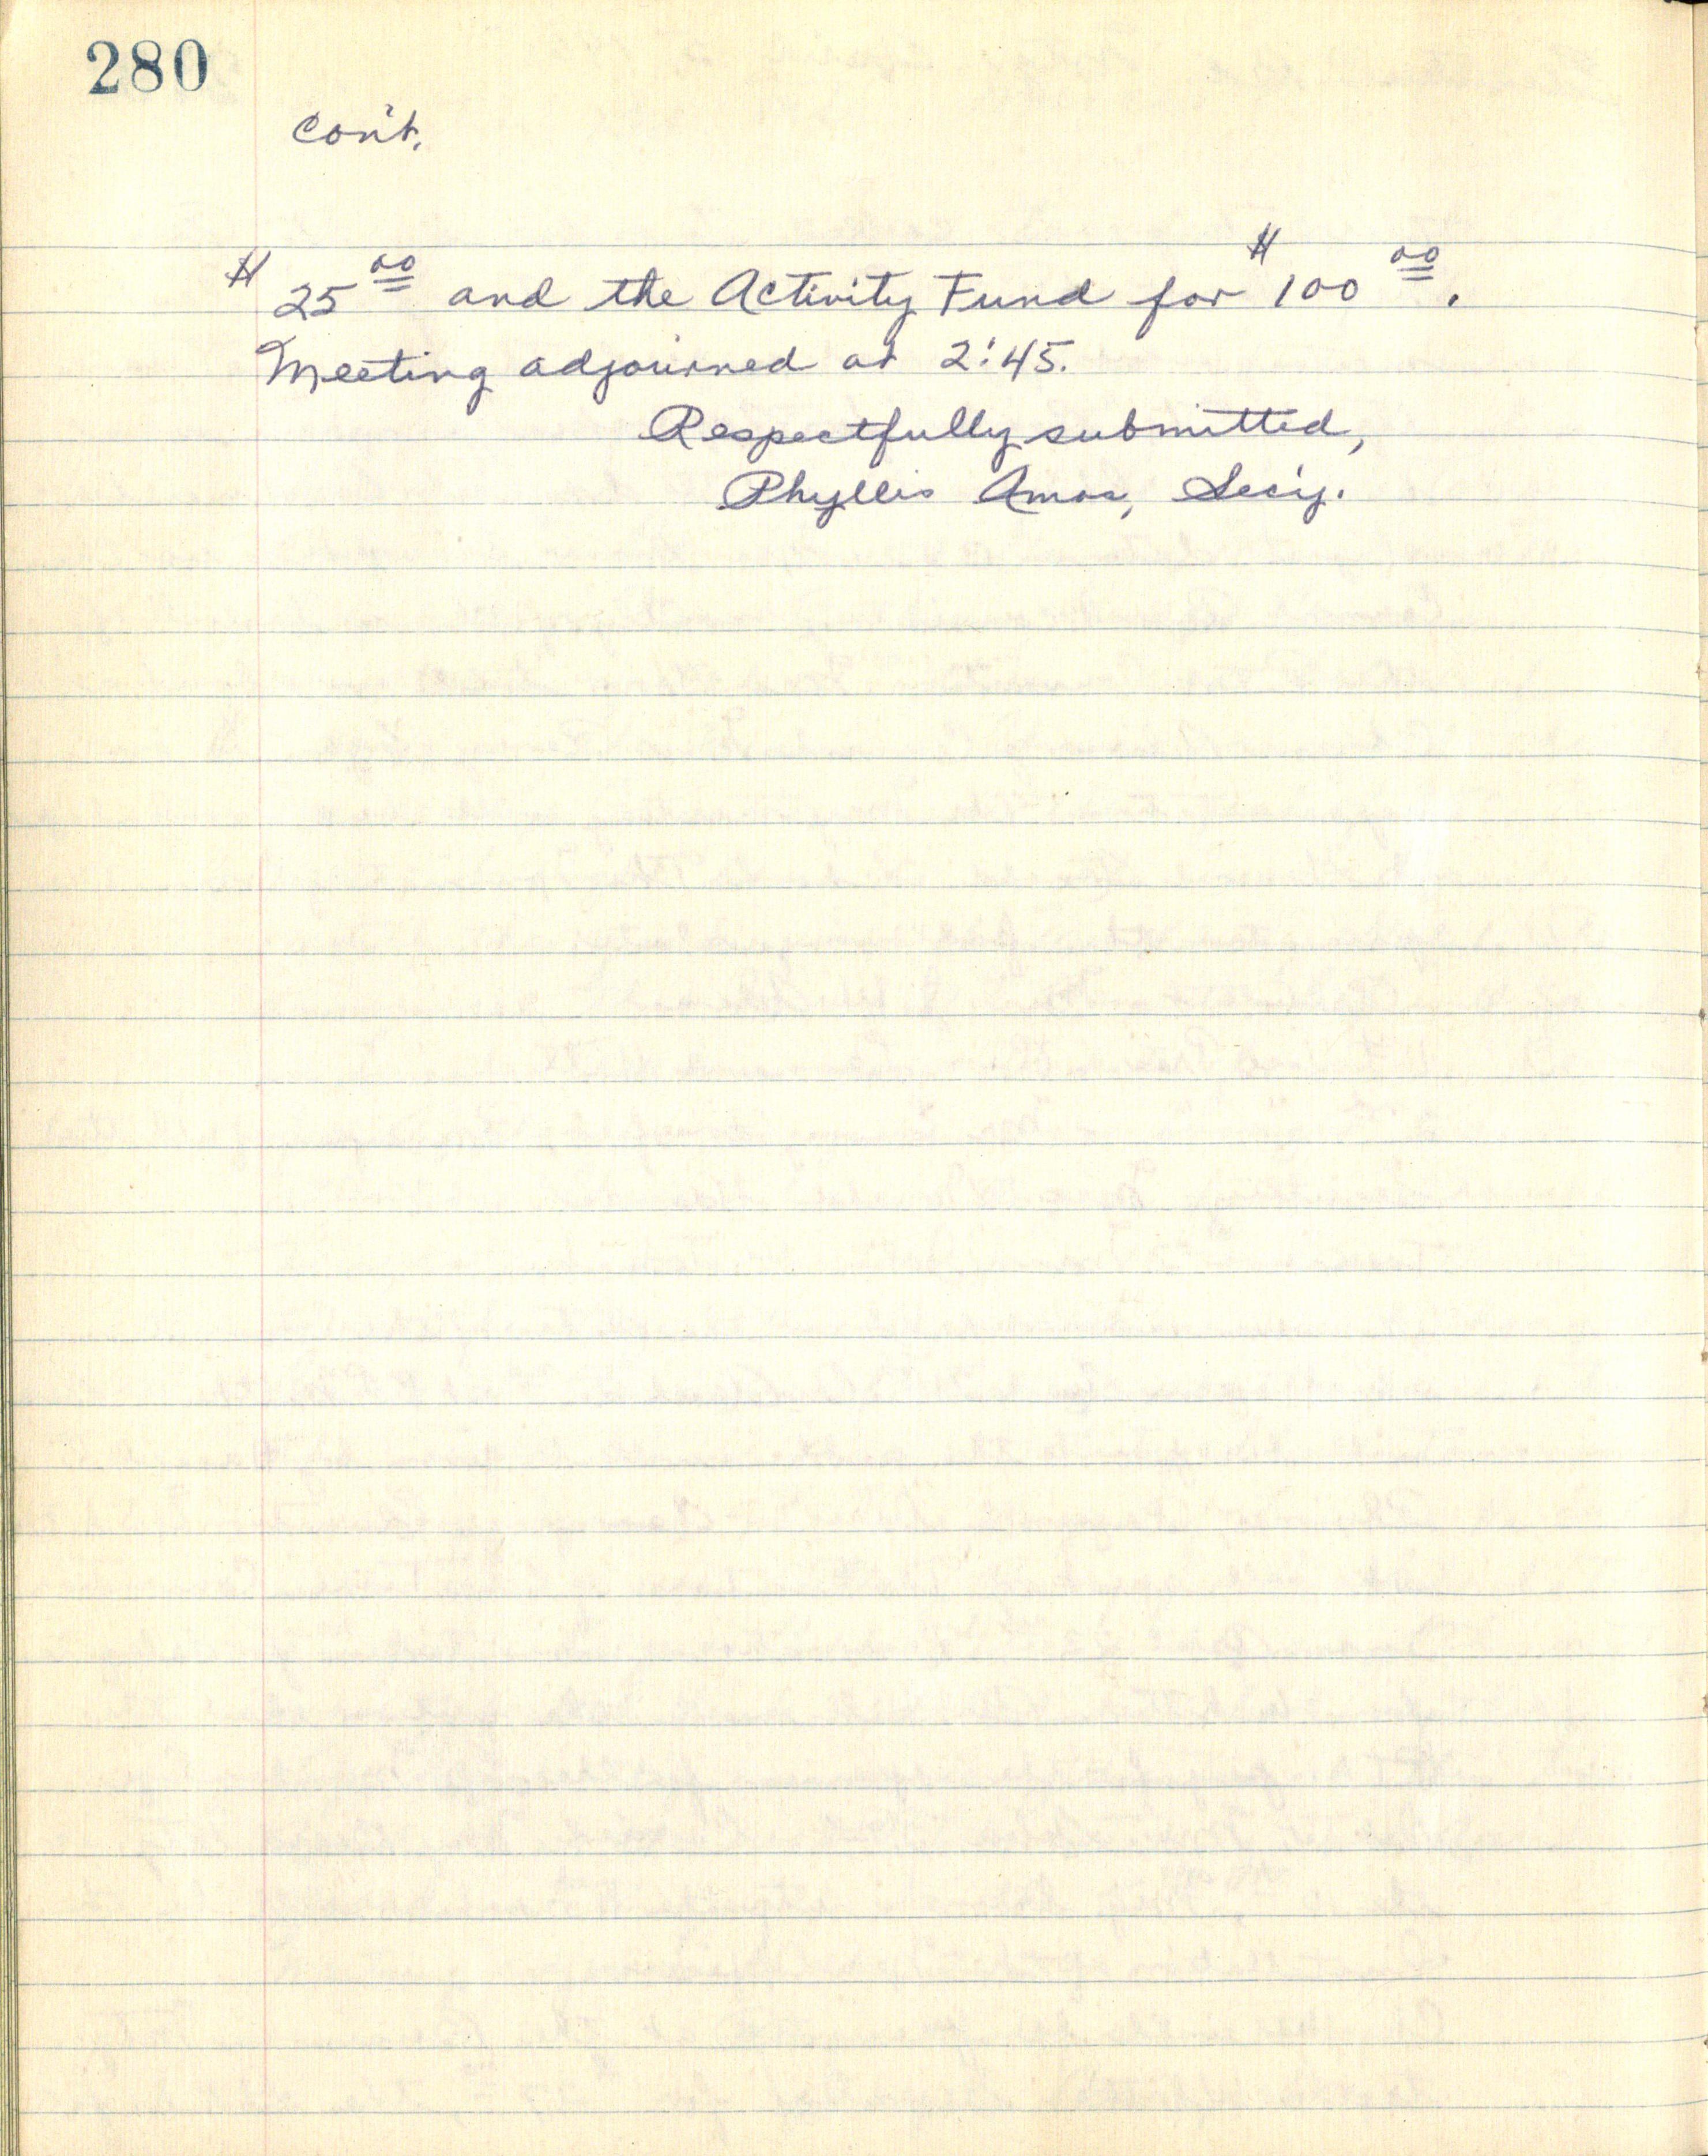 280
con't.
$25 00 and the Activity Fund for $100 00.
Meeting adjourned at 2:45.
Respectfully submitted,
Phyllis Amos, Sec'y.